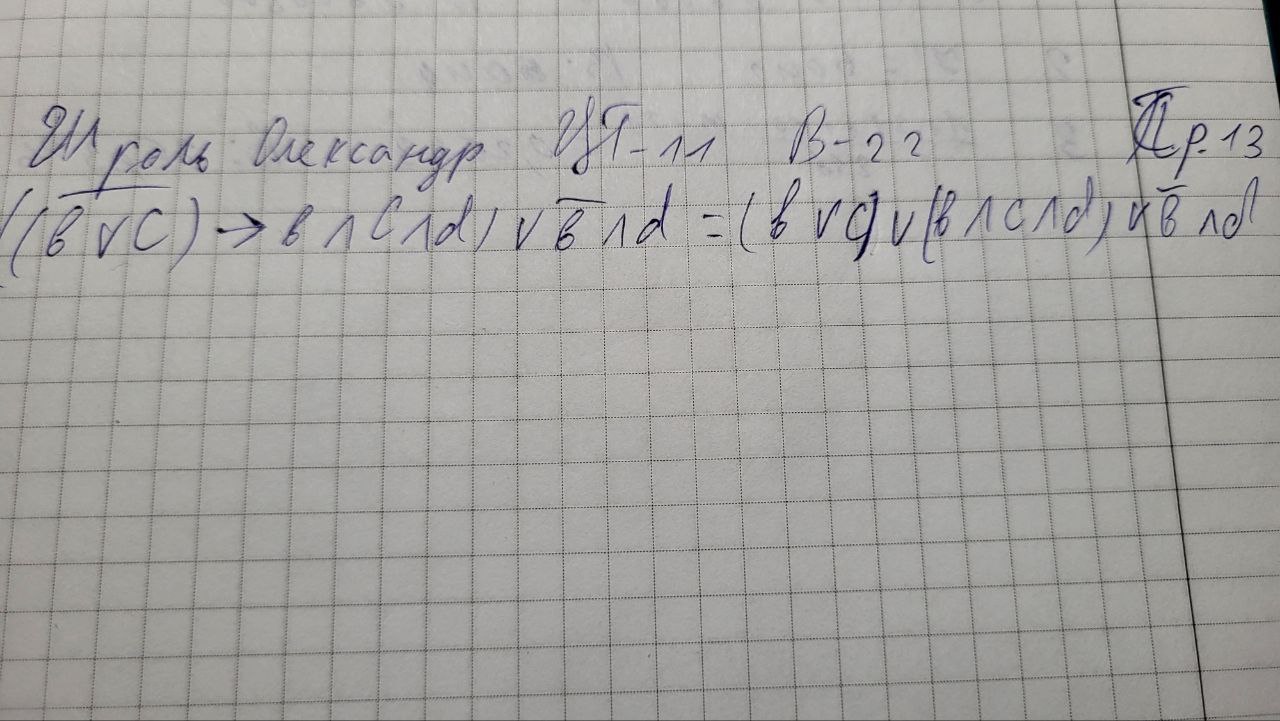 Шроль Олександр ЦТ-11 В-22 Пр.13
((b̅ ̅v̅ ̅c̅) → b ∧ c ∧ d) ∨ b̅ ∧ d = (b ∨ c) ∨ (b ∧ c ∧ d) ∨ b̅ ∧ d